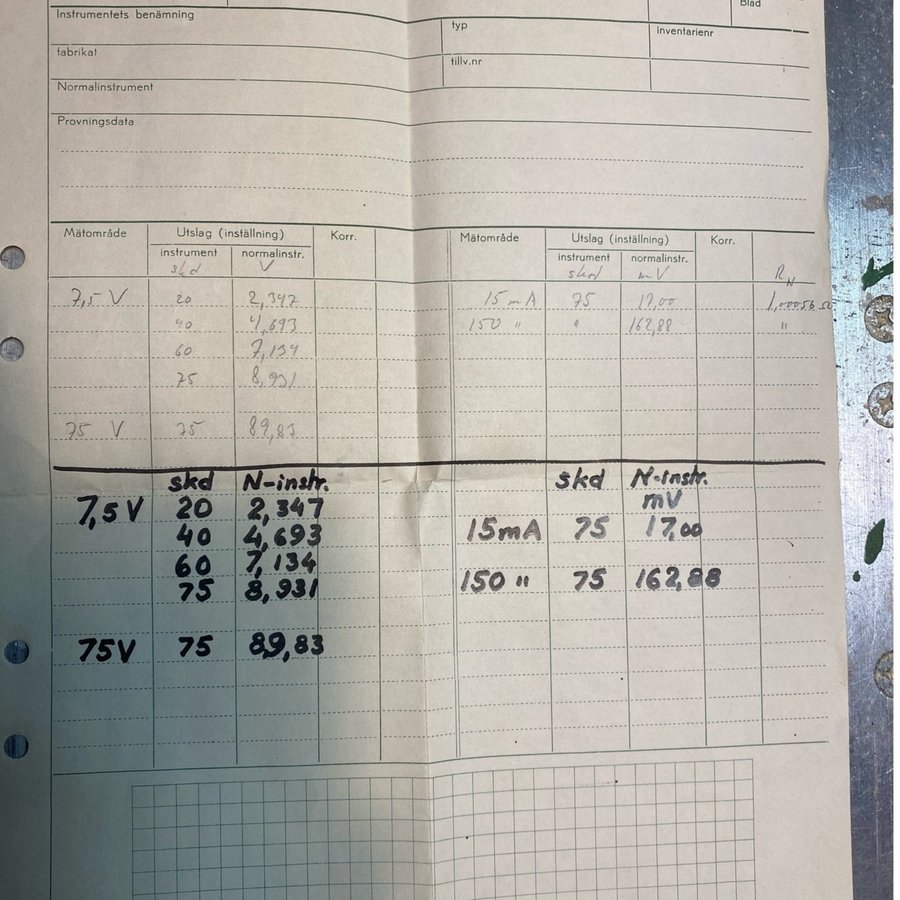 Blad
Instrumentets benämning
typ
inventarienr
fabrikat
tillv.nr
Normalinstrument
Provningsdata
Mätområde Utslag (inställning) Korr. Mätområde Utslag (inställning) Korr.
instrument normalinstr. instrument normalinstr.
skd V skd mV RN
7,5 V 20 2,347 15 mA 75 17,00 1,00056 Ω
40 4,693 150 " " 162,88 "
60 7,134
75 8,931
75 V 75 89,83
skd N-instr. skd N-instr.
7,5 V 20 2,347 mV
40 4,693 15mA 75 17,00
60 7,134
75 8,931 150 " 75 162,88
75V 75 89,83